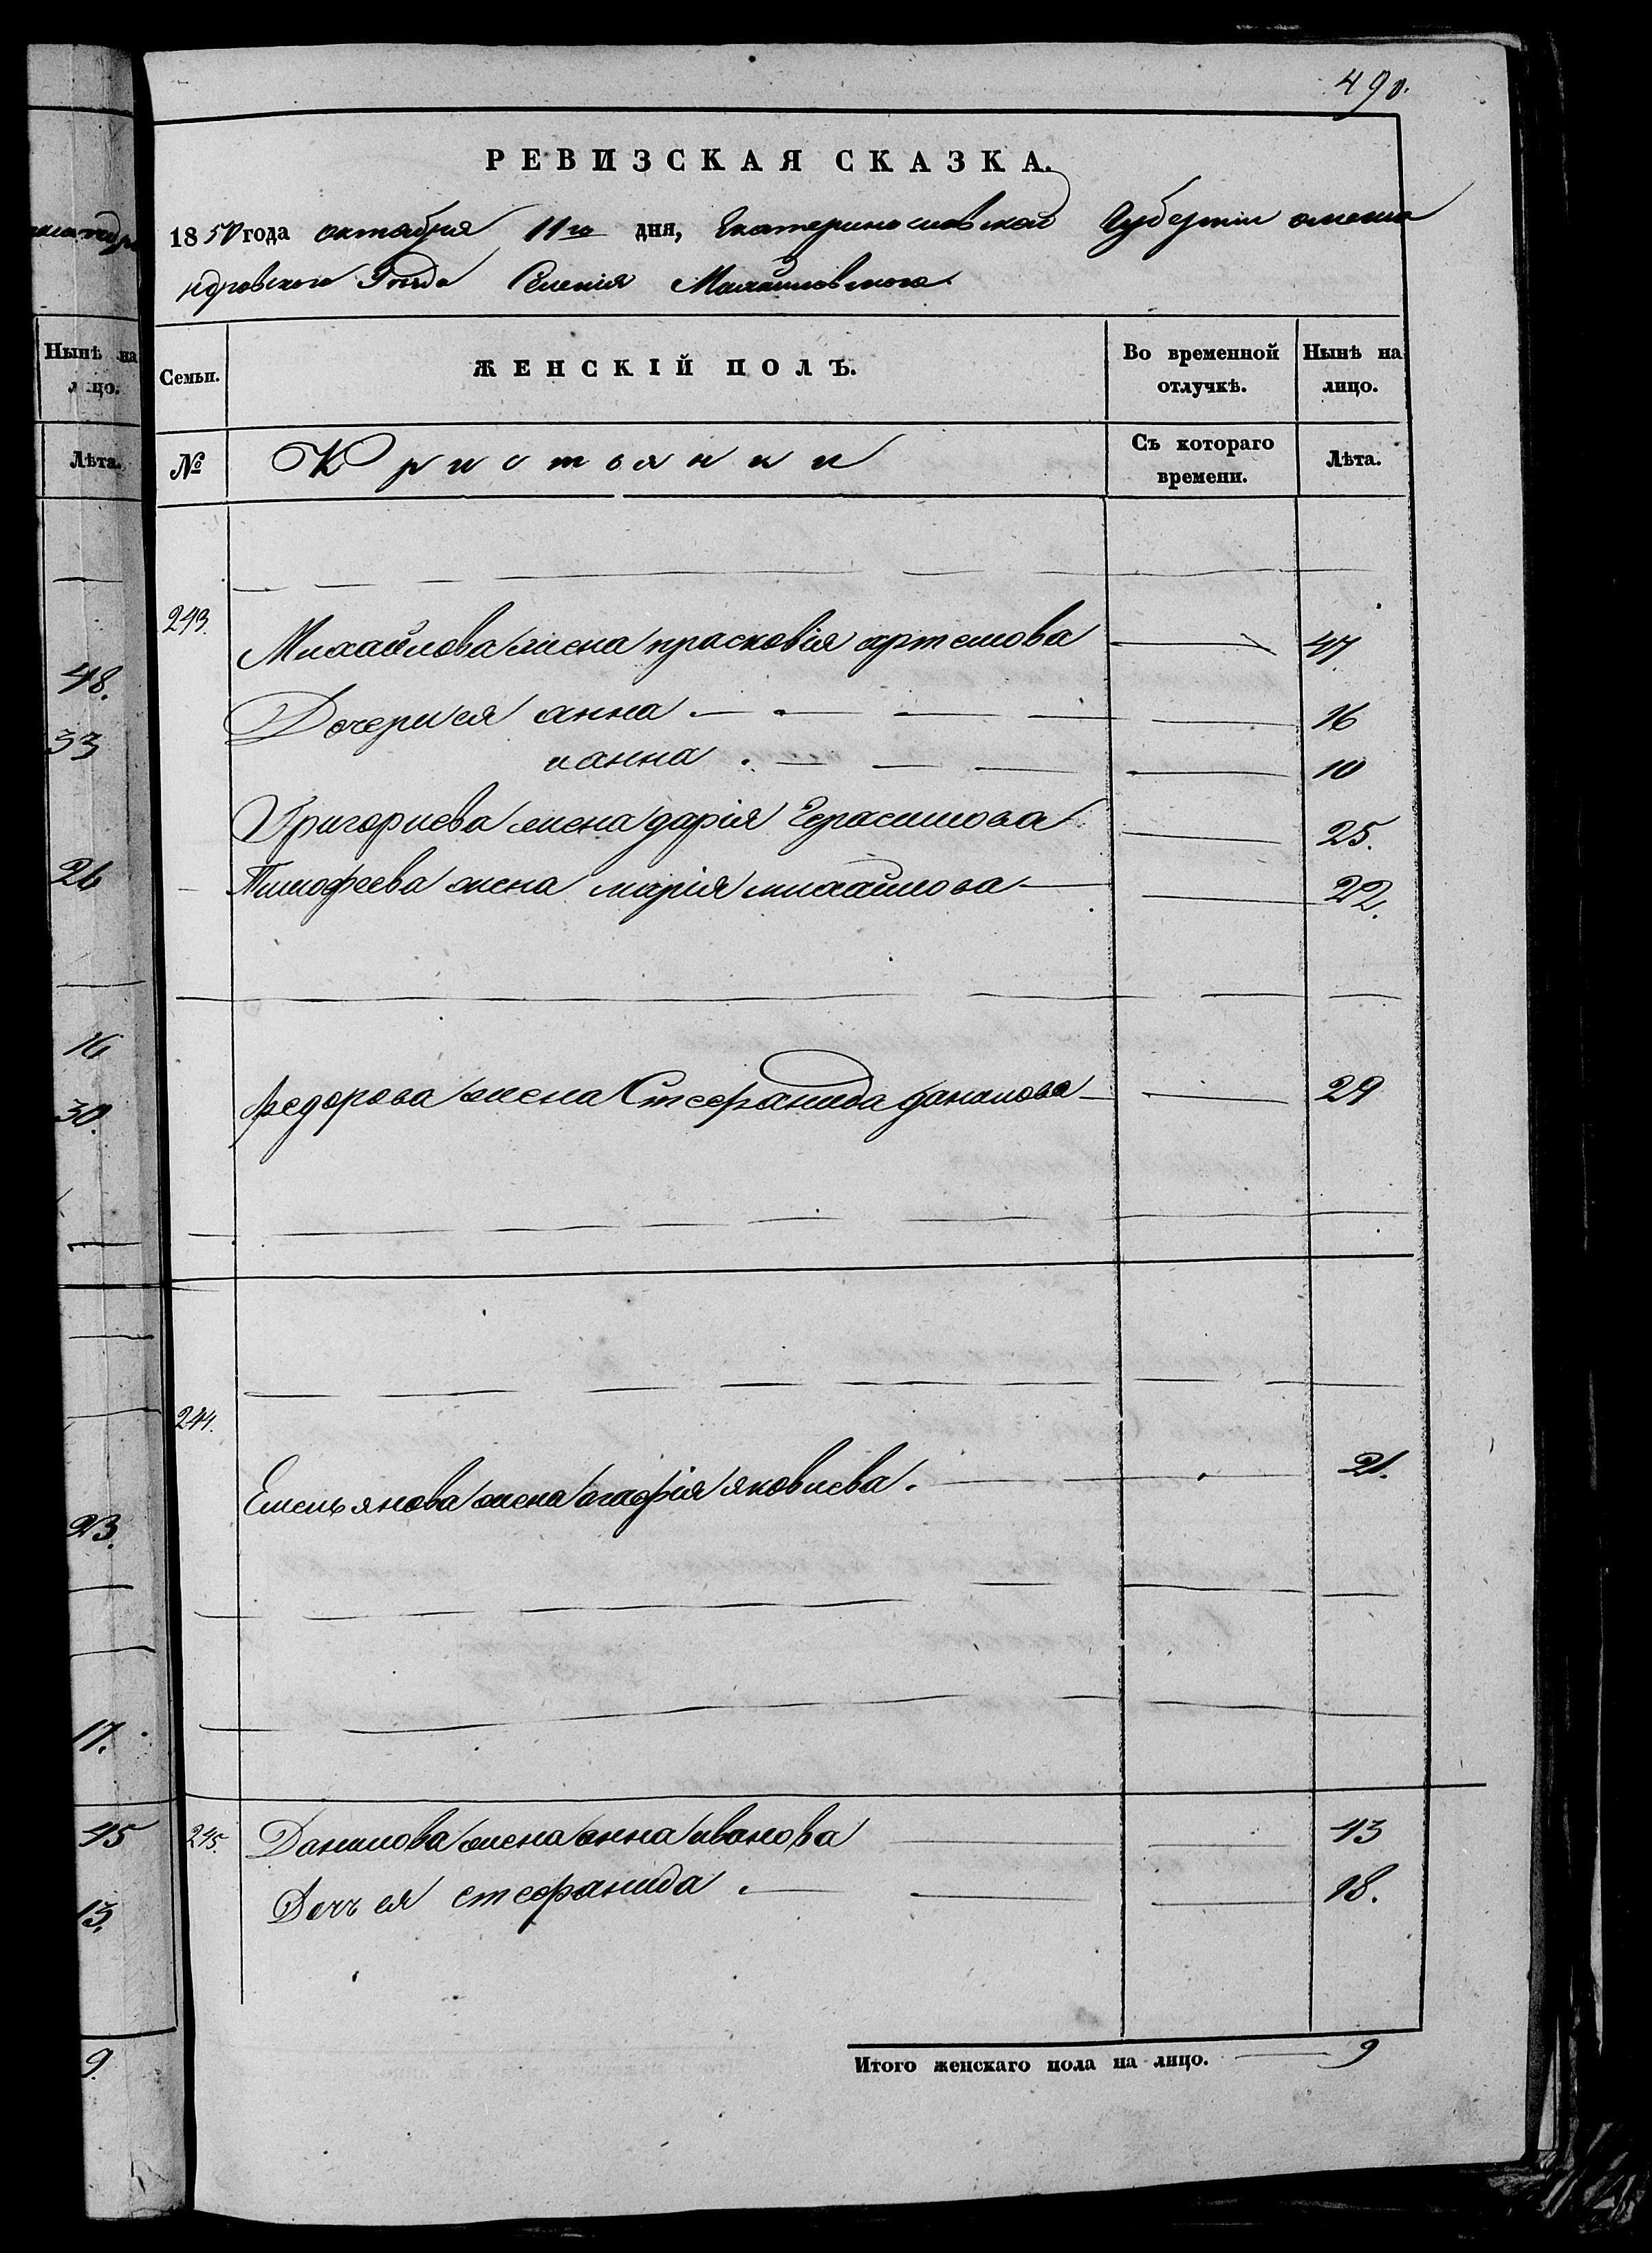 490.
РЕВИЗСКАЯ СКАЗКА.
1850 года октября 11го дня, Екатеринославской Губерніи алекса
ндровского Уѣзда Селенія Михайловского
Семьи. ЖЕНСКІЙ ПОЛЪ. Во временной отлучкѣ. Нынѣ на лицо.
№ Кристьянки Съ котораго времени. Лѣта.
243. Михайлова жена прасковія артемова 47
Дочери ея анна 16
и анна 10
Григориева жена дарія Герасимова 25.
Тимофеева жена марія михайлова 22.
федорова жена Стефанида данилова 29
244.
Емельянова жена агафія яковлева. 21.
245. Данилова жена анна иванова 43
Дочь ея стефанида 18.
Итого женскаго пола на лицо. 9
Нынѣ на лицо.
Лѣта.
48.
33
26
16
30.
23.
17.
45
13.
9